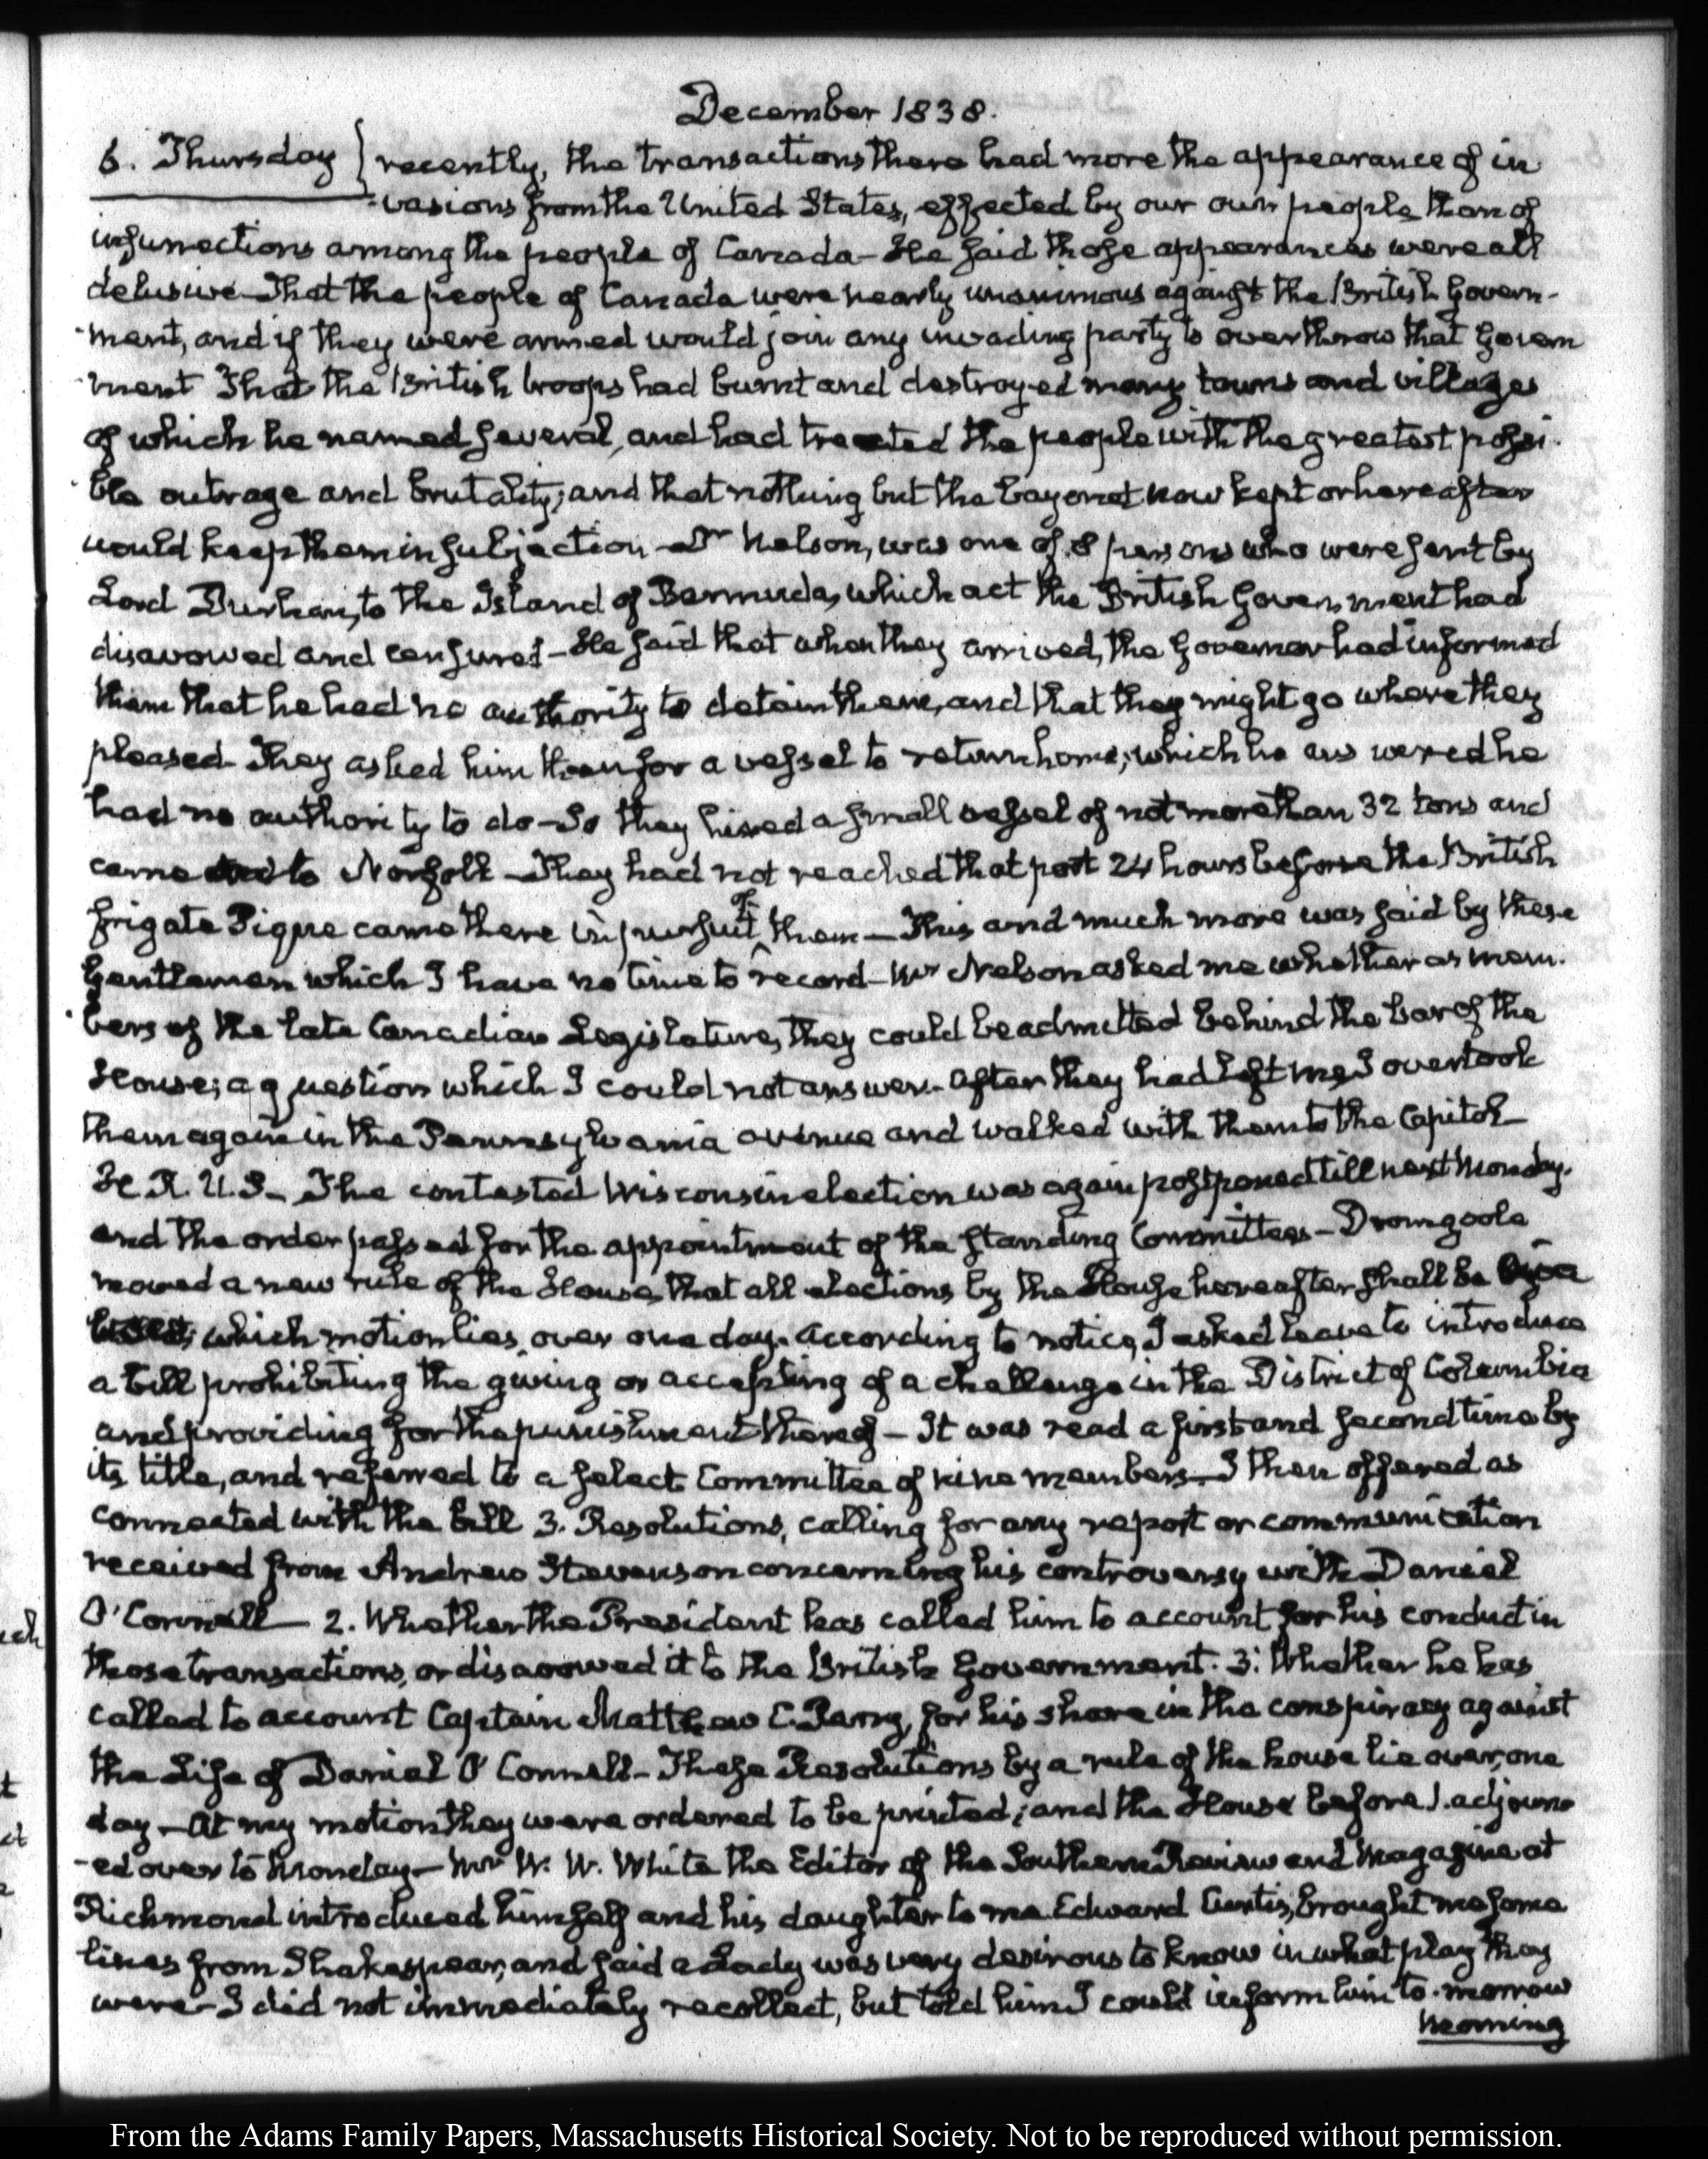 December 1838.
6. Thursday } recently, the transactions there had more the appearance of in
-vasions from the United States, effected by our own people than of
insurrections among the people of Canada - He said those appearances were all
delusive - That the people of Canada were nearly unanimous against the British Govern-
-ment, and if they were armed would join any invading party to overthrow that Govern
-ment That the British troops had burnt and destroyed many towns and villages
of which he named several, and had treated the people with the greatest possi-
-ble outrage and brutality; and that nothing but the bayonet now kept or hereafter
would keep them in subjection - Dr Nelson, was one of 8 persons who were sent by
Lord Durham, to the Island of Bermuda, which act the British Government had
disavowed and censured - He said that when they arrived, the Governor had informed
them that he had no authority to detain them, and that they might go where they
pleased - They asked him then for a vessel to return home; which he answered he
had no authority to do - So they hired a small vessel of not more than 32 tons and
came to Norfolk - They had not reached that port 24 hours before the British
frigate Pique came there in pursuit of them - This and much more was said by these
Gentlemen which I have no time to record - Mr Nelson asked me whether as mem-
-bers of the late Canadian Legislature, they could be admitted behind the bar of the
House; a question which I could not answer - After they had left me I overtook
them again in the Pennsylvania avenue and walked with them to the Capitol -
H. R. U.S - The contested Wisconsin election was again postponed till next Monday.
and the order passed for the appointment of the standing Committees - Dromgoole
moved a new rule of the House, that all elections by the House hereafter shall be viva
voce; which motion lies over one day. According to notice, I asked leave to introduce
a bill prohibiting the giving or accepting of a challenge in the District of Columbia
and providing for the punishment thereof - It was read a first and second time by
its title, and referred to a select Committee of nine members - I then offered as
connected with the bill 3. Resolutions, calling for any report or communication
received from Andrew Stevenson concerning his controversy with Daniel
O'Connell - 2. Whether the President has called him to account for his conduct in
those transactions, or disavowed it to the British Government. 3. Whether he has
called to account Captain Matthew C. Perry, for his share in the conspiracy against
the Life of Daniel O'Connell - These Resolutions by a rule of the house lie over, one
day - At my motion they were ordered to be printed; and the House before 1. adjourn
-ed over to Monday - Mr W. W. White the Editor of the Southern Review and Magazine at
Richmond introduced himself and his daughter to me. Edward Curtis, brought me some
lines from Shakespear, and said a Lady was very desirous to know in what play they
were - I did not immediately recollect, but told him I could inform him to-morrow
morning
From the Adams Family Papers, Massachusetts Historical Society. Not to be reproduced without permission.